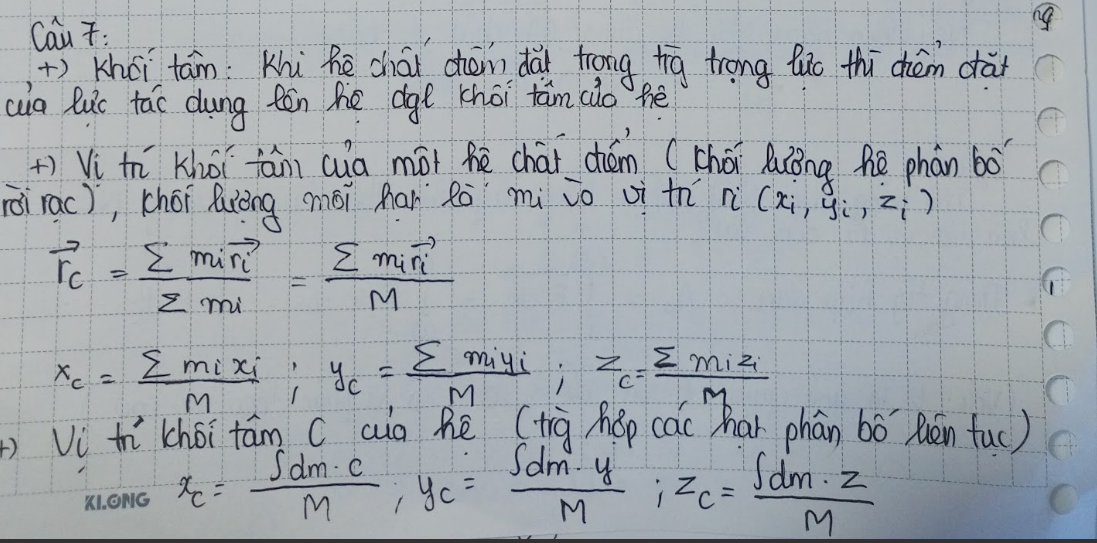 Câu 7:
+) Khối tâm: Khi hệ chất điểm đặt trong trg trọng lực thì điểm đặt
của lực tác dụng lên hệ đgl khối tâm của hệ
+) Vị trí khối tâm của một hệ chất điểm (khối lượng hệ phân bố
rời rạc), khối lượng mỗi hạt là mi và vị trí ri (xi, yi, zi)
\vec{r_c} = \frac{Σ mi\vec{ri}}{Σ mi} = \frac{Σ mi\vec{ri}}{M}
x_c = \frac{Σ mi xi}{M} ; y_c = \frac{Σ miyi}{M} ; z_c = \frac{Σ mi zi}{M}
+) Vị trí khối tâm C của hệ (trg hợp các hạt phân bố liên tục)
x_c = \frac{∫dm · c}{M} ; y_c = \frac{∫dm · y}{M} ; z_c = \frac{∫dm · z}{M}
KLONG